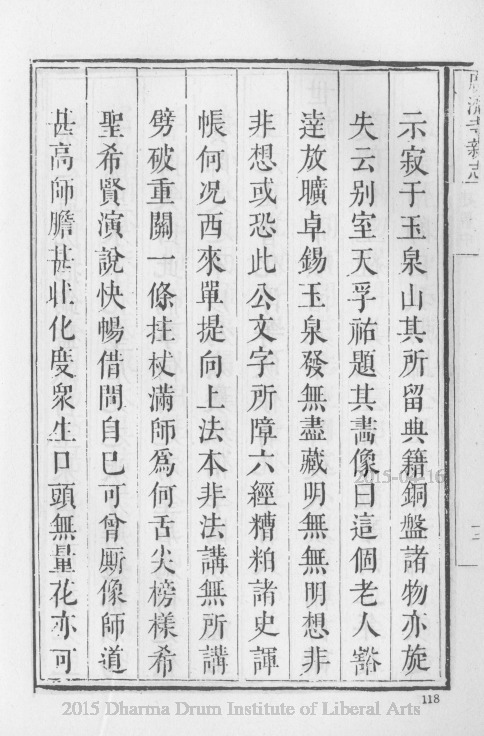 示寂于玉泉山其所留典籍銅盤諸物亦旋
失云别室天孚祐題其畵像曰這個老人豁
達放曠卓錫玉泉發無盡藏明無無明想非
非想或恐此公文字所障六經糟粕諸史諢
帳何况西來單提向上法本非法講無所講
劈破重關一條拄杖滿師爲何舌尖榜樣希
聖希賢演說快暢借問自巳可曾厮像師道
甚高師膽甚壯化度衆生口頭無量花亦可
118
2015-04-16
2015 Dharma Drum Institute of Liberal Arts